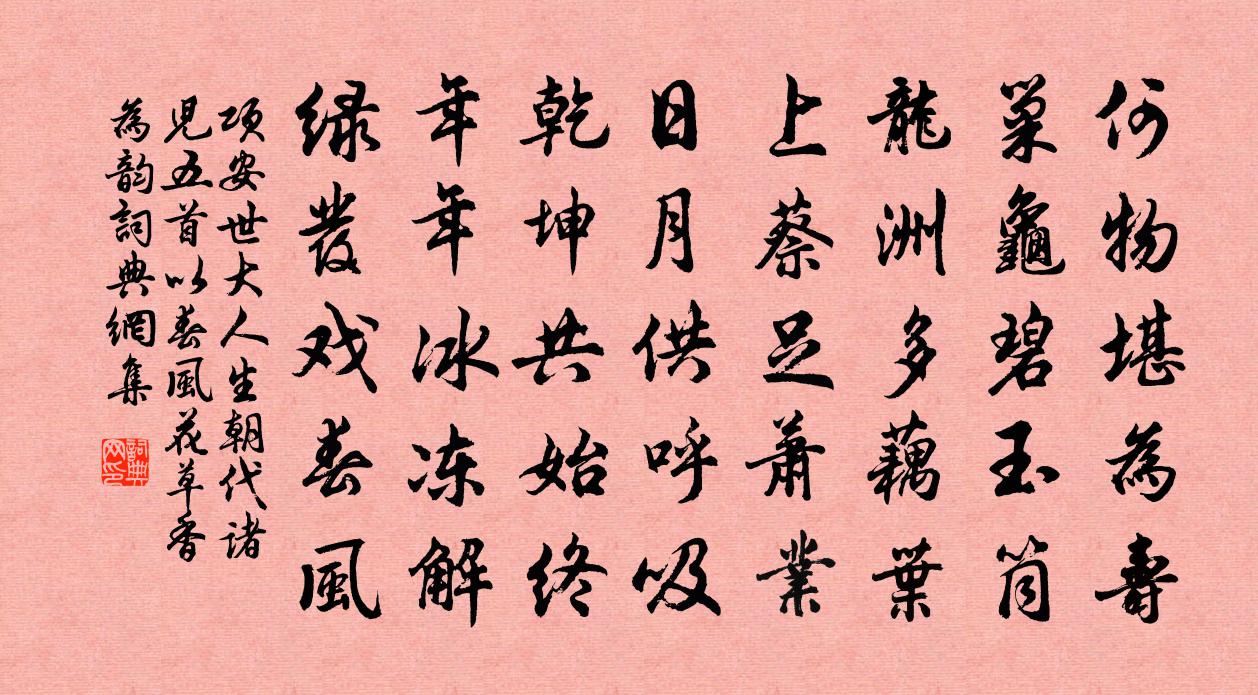 何物堪為壽
巢龜碧玉筒
龍洲多藕葉
上蔡足蕭業
日月供呼吸
乾坤共始終
年年冰冻解
绿發戏春風
项安世大人生朝代诸
児五首以春風花草香
為韵詞典網集
詞典网印